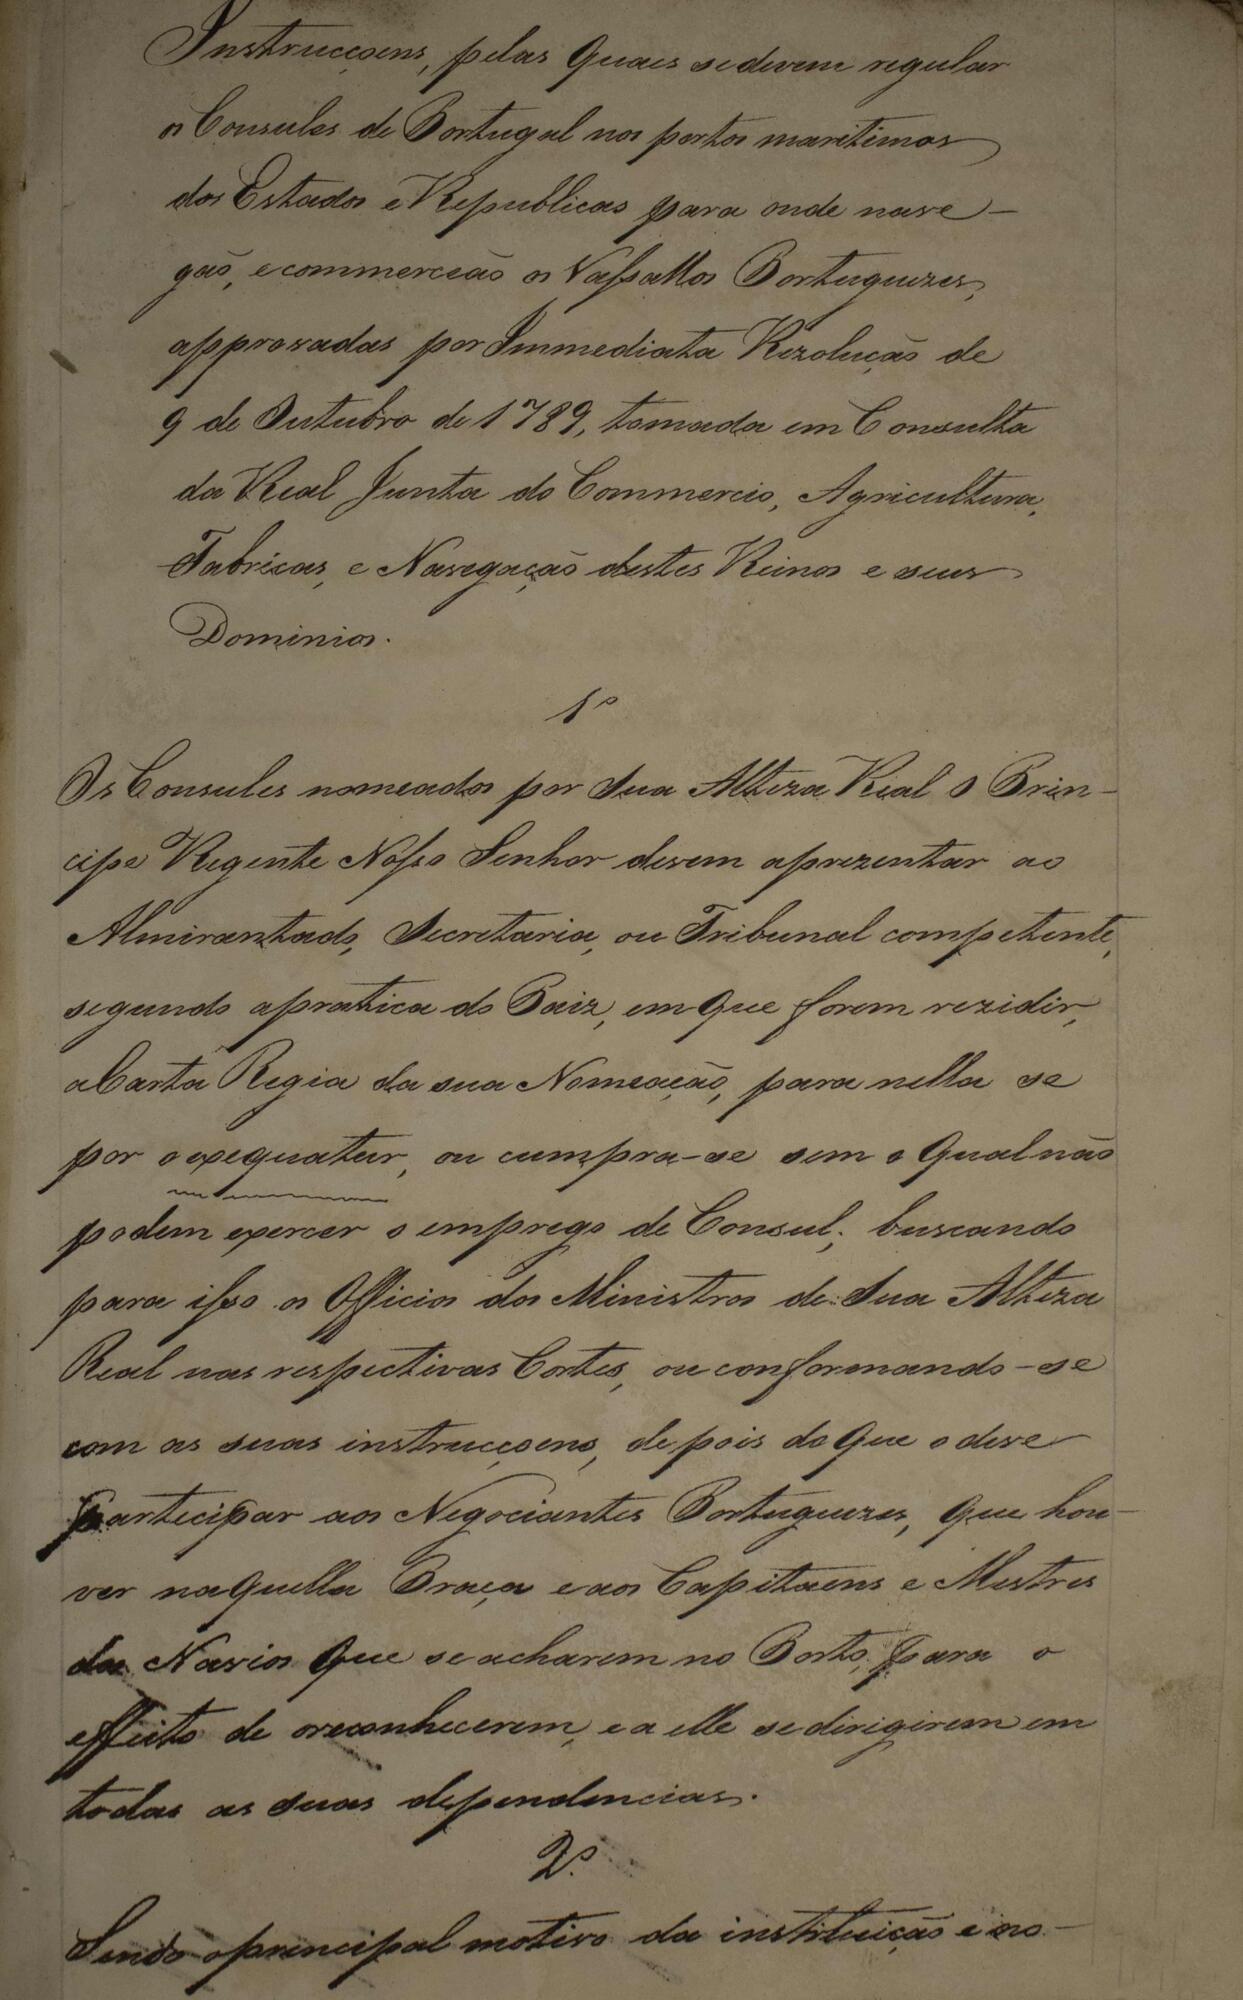 Instrucçoens, pelas quaes se devem regular
os Consules de Portugal nos portos maritimos
dos Estados e Republicas para onde nave-
gaõ, e commerceaõ os Vassallos Portuguezes,
approvadas por Immediata Rezoluçaõ de
9 de Outubro de 1789, tomada em Consulta
da Real Junta do Commercio, Agricultura,
Fabricas, e Navegaçaõ destes Reinos e seus
Dominios.
1º
Os Consules nomeados por Sua Alteza Real O Prin-
cipe Regente Nosso Senhor devem aprezentar ao
Almirantado, Secretaria, ou Tribunal competente,
segundo a pratica do Paiz, em que forem rezidir,
a Carta Regia da sua Nomeaçaõ, para nella se
por o exequatur, ou cumpra-se sem o qual naõ
podem exercer o emprego de Consul; buscando
para isso os Officios dos Ministros de Sua Alteza
Real nas respectivas Cortes, ou conformando-se
com as suas instrucçoens, depois do que o deve
participar aos Negociantes Portuguezes, que hou-
ver naquella Praça e aos Capitaens e Mestres
dos Navios que se acharem no Porto, para o
effeito de o reconhecerem, e a elle se dirigirem em
todas as suas dependencias.
2º
Sendo o principal motivo da instituiçaõ e no-